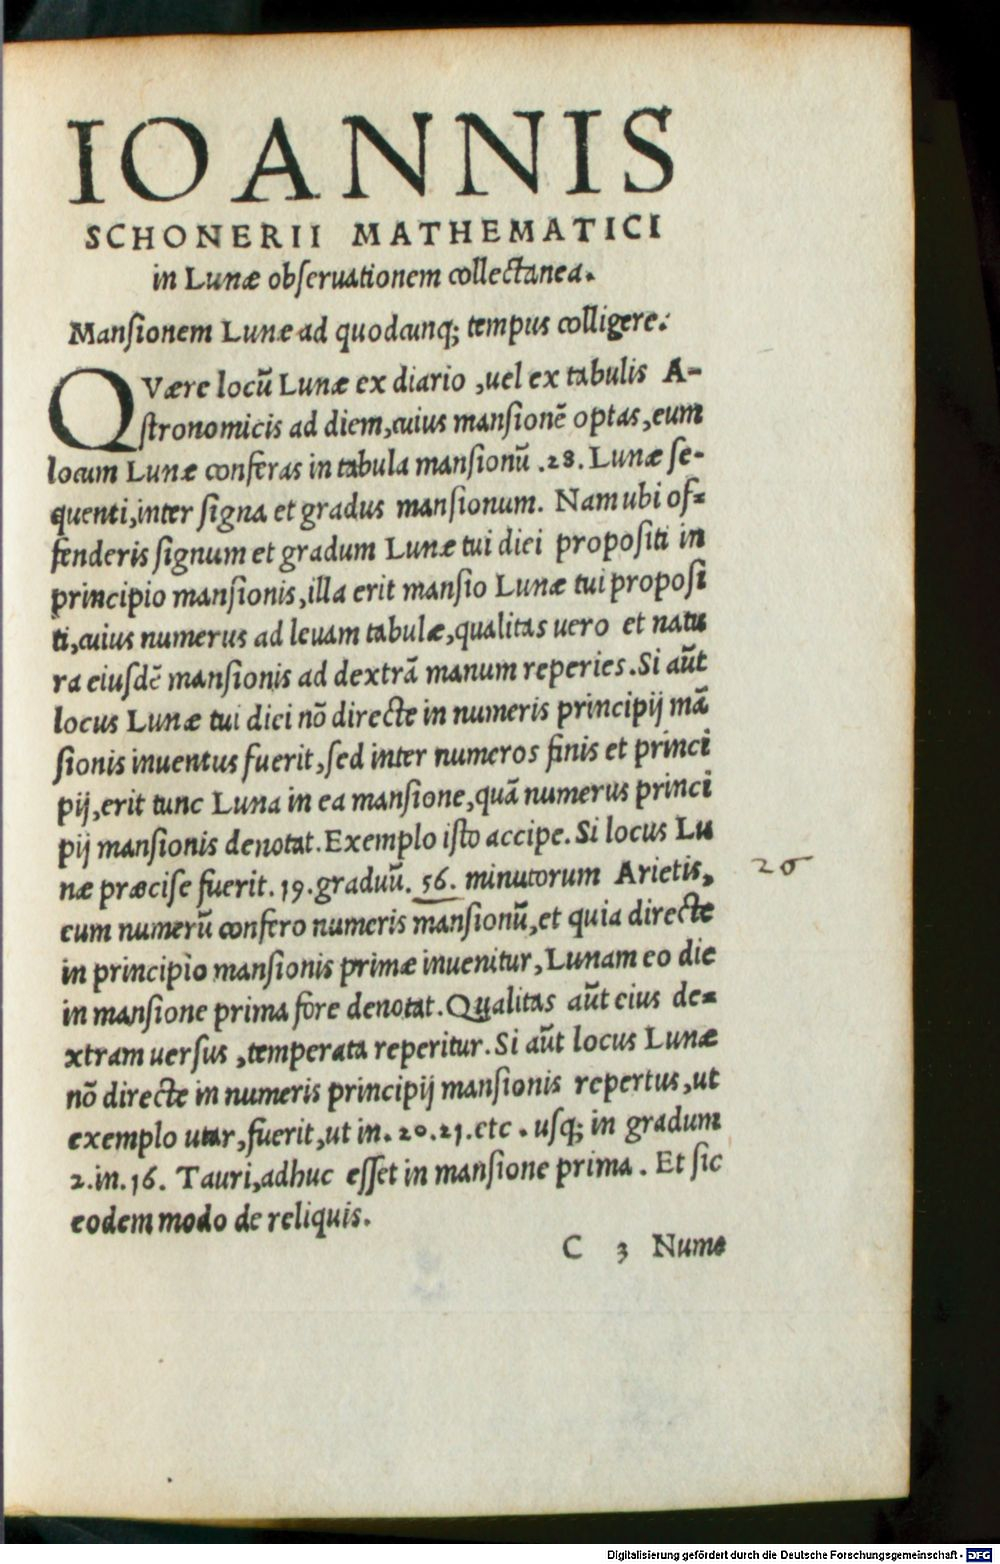 IOANNIS
SCHONERII MATHEMATICI
in Lunæ obſeruationem collectanea.
Manſionem Lunæ ad quodcunq; tempus colligere.
QVære locū Lunæ ex diario ,uel ex tabulis A-
ſtronomicis ad diem,cuius manſionē optas,eum
locum Lunæ conferas in tabula manſionū .28. Lunæ ſe-
quenti,inter ſigna et gradus manſionum. Nam ubi of-
fenderis ſignum et gradum Lunæ tui diei propoſiti in
principio manſionis,illa erit manſio Lunæ tui propoſi
ti,cuius numerus ad leuam tabulæ,qualitas uero et natu
ra eiuſdē manſionis ad dextrā manum reperies.Si aūt
locus Lunæ tui diei nō directe in numeris principij mā
ſionis inuentus fuerit,ſed inter numeros finis et princi
pij,erit tunc Luna in ea manſione,quā numerus princi
pij manſionis denotat.Exemplo iſto accipe.Si locus Lu
næ præciſe fuerit.19.graduū. 56. minutorum Arietis,
eum numerū confero numeris manſionū,et quia directe
in principio manſionis primæ inuenitur,Lunam eo die
in manſione prima fore denotat.Qualitas aūt eius de-
xtram uerſus ,temperata reperitur.Si aūt locus Lunæ
nō directe in numeris principij manſionis repertus,ut
exemplo utar,fuerit,ut in.20.21.etc.uſq; in gradum
2.in.16. Tauri,adhuc eſſet in manſione prima. Et ſic
eodem modo de reliquis.
C 3 Nume
Digitalisierung gefördert durch die Deutsche Forschungsgemeinschaft - DFG